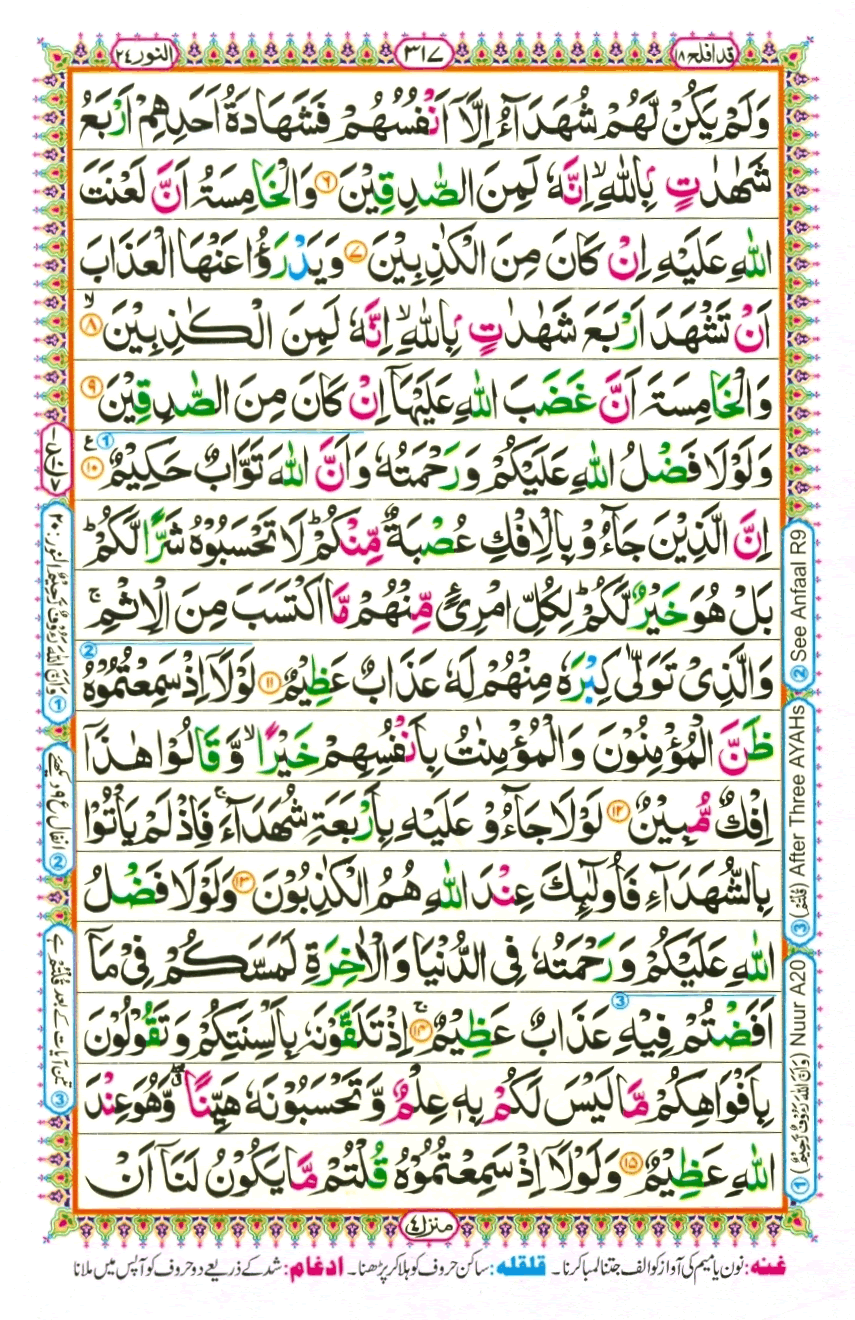 قد افلح ۱۸
۳۱۷
النور ۲۴
وَلَمْ يَكُنْ لَّهُمْ شُهَدَآءُ اِلَّاۤ اَنْفُسُهُمْ فَشَهَادَةُ اَحَدِهِمْ اَرْبَعُ
شَهٰدٰتٍۭ بِاللّٰهِ ۙ اِنَّهٗ لَمِنَ الصّٰدِقِيْنَ ۶ وَالْخَامِسَةُ اَنَّ لَعْنَتَ
اللّٰهِ عَلَيْهِ اِنْ كَانَ مِنَ الْكٰذِبِيْنَ ۷ وَيَدْرَؤُا عَنْهَا الْعَذَابَ
اَنْ تَشْهَدَ اَرْبَعَ شَهٰدٰتٍۭ بِاللّٰهِ ۙ اِنَّهٗ لَمِنَ الْكٰذِبِيْنَ ۸ ۙ
وَالْخَامِسَةَ اَنَّ غَضَبَ اللّٰهِ عَلَيْهَاۤ اِنْ كَانَ مِنَ الصّٰدِقِيْنَ ۹
وَلَوْلَا فَضْلُ اللّٰهِ عَلَيْكُمْ وَرَحْمَتُهٗ وَاَنَّ اللّٰهَ تَوَّابٌ حَكِيْمٌ ۱۰ ع ①
اِنَّ الَّذِيْنَ جَآءُوْ بِالْاِفْكِ عُصْبَةٌ مِّنْكُمْ ؕ لَا تَحْسَبُوْهُ شَرًّا لَّكُمْ ؕ
بَلْ هُوَ خَيْرٌ لَّكُمْ ؕ لِكُلِّ امْرِئٍ مِّنْهُمْ مَّا اكْتَسَبَ مِنَ الْاِثْمِ ۚ
وَالَّذِيْ تَوَلّٰى كِبْرَهٗ مِنْهُمْ لَهٗ عَذَابٌ عَظِيْمٌ ۱۱ لَوْلَاۤ اِذْ سَمِعْتُمُوْهُ ②
ظَنَّ الْمُؤْمِنُوْنَ وَالْمُؤْمِنٰتُ بِاَنْفُسِهِمْ خَيْرًا ۙ وَّقَالُوْا هٰذَاۤ
اِفْكٌ مُّبِيْنٌ ۱۲ لَوْلَا جَآءُوْ عَلَيْهِ بِاَرْبَعَةِ شُهَدَآءَ ۚ فَاِذْ لَمْ يَاْتُوْا
بِالشُّهَدَآءِ فَاُولٰٓئِكَ عِنْدَ اللّٰهِ هُمُ الْكٰذِبُوْنَ ۱۳ وَلَوْلَا فَضْلُ
اللّٰهِ عَلَيْكُمْ وَرَحْمَتُهٗ فِي الدُّنْيَا وَالْاٰخِرَةِ لَمَسَّكُمْ فِيْ مَاۤ
اَفَضْتُمْ فِيْهِ عَذَابٌ عَظِيْمٌ ۱۴ ۚ اِذْ تَلَقَّوْنَهٗ بِاَلْسِنَتِكُمْ وَتَقُوْلُوْنَ ③
بِاَفْوَاهِكُمْ مَّا لَيْسَ لَكُمْ بِهٖ عِلْمٌ وَّتَحْسَبُوْنَهٗ هَيِّنًا ۖ وَّهُوَ عِنْدَ
اللّٰهِ عَظِيْمٌ ۱۵ وَلَوْلَاۤ اِذْ سَمِعْتُمُوْهُ قُلْتُمْ مَّا يَكُوْنُ لَنَاۤ اَنْ
② See Anfaal R9
③ (قُلْتُمْ) After Three AYAHs
① (وَاَنَّ اللّٰهَ رَءُوْفٌ رَّحِيْمٌ) Nuur A20
① وَاَنَّ اللّٰهَ رَءُوْفٌ رَّحِيْمٌ النور: ۲۰
② انفال ع ۹ دیکھئے
③ تین آیات کے بعد قُلْتُمْ ہے
منزل ۴
غنه: نون یا میم کی آواز کو الف جتنا لمبا کرنا۔ قلقله: ساکن حروف کو ہلا کر پڑھنا۔ ادغام: شد کے ذریعے دو حروف کو آپس میں ملانا